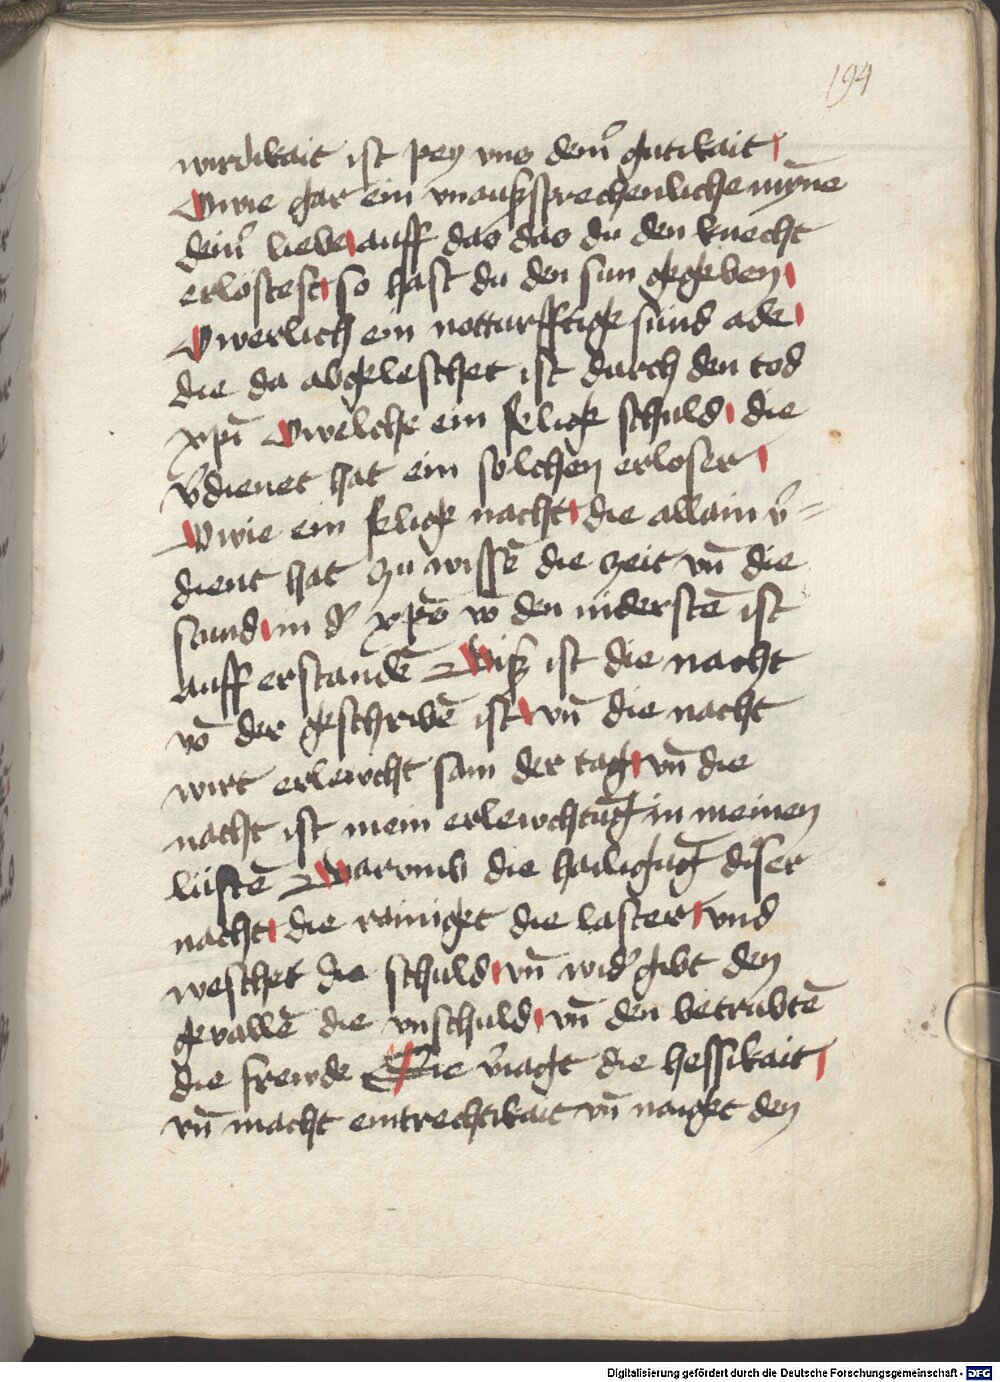 194
wirdikait ist pey vns dein᷑ gutikait
O wie gar ein vnaußsprechenliche mȳne
dein᷑ liebe auff das das du den knecht
erlostest so hast du den sun gegeben
O werlich ein notturfftige sund ade
die da abgeleschet ist durch den tod
xp̄i O welche ein selige schuld die
v᷑dienet hat ein solchen erloser
O wie ein selige nacht die allain v᷑=
dient hat zu wissē die zeit vn̄ die
stund in d᷑ xp̄s vō den niderstē ist
auff erstandē Diß ist die nacht
vō der geschribē ist vn̄ die nacht
wirt erlewcht sam der tag vn̄ die
nacht ist mein erlewchtūg in meinen
lüstē Warvmb die hailigūg diser
nacht die rainiget die laster vnd
weschet die schuld vn̄ wid᷑ gibt den
gevallē die vnschuld vn̄ den betrubtē
die frewde Sie v᷑iagt die hessikait
vn̄ macht eintrechtikait vn̄ naiget den
Digitalisierung gefördert durch die Deutsche Forschungsgemeinschaft - DFG